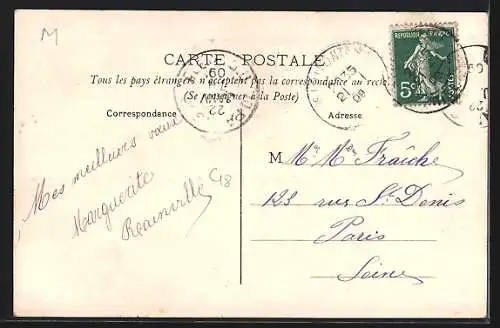 M
CARTE POSTALE
Tous les pays étrangers n'acceptent pas la correspondance au recto
(Se renseigner à la Poste)
Correspondance
Adresse
REPUBLIQUE FRANÇAISE
5c
POSTES
Mes meilleurs vœux
Marguerite
M Mr Me Fraîche
123 rue St Denis
Paris
Seine